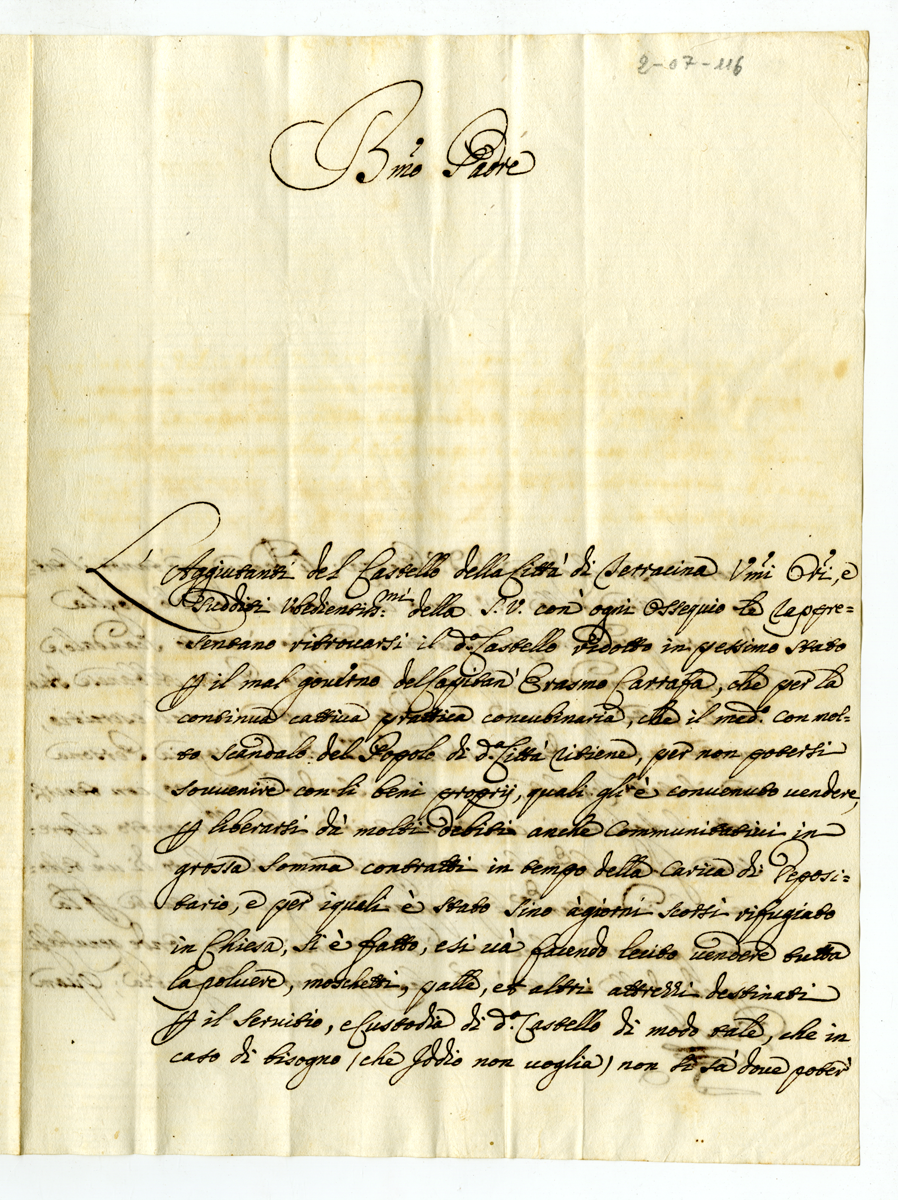 2-07-116
B.mo Padre
L'Aggiutanti del Castello della Città di Terracina Vmi Ori, e
Sudditi Vbedientis.mi della S.V. con ogni Ossequio le rappre=
sentano ritrovarsi il d.o Castello ridotto in pessimo stato
p il mal governo del Capitan Erasmo Carrafa, che per la
continua cattiva prattica concubinaria, che il med.o con mol-
to scandalo del Popolo di d.a Città ritiene, per non potersi
souvenire con li beni proprij, quali gl'è convenuto vendere,
p liberarsi dà molti debiti anche Communitativi in
grossa somma contratti in tempo della Carica di Deposi=
tario, e per i quali è stato sino à giorni scorsi rifugiato
in Chiesa, si è fatto, e si và facendo lecito vendere tutta
la polvere, moschetti, palle, et altri attrezzi destinati
p il servitio, e Custodia di d.o Castello di modo tale, che in
caso di bisogno (che Iddio non voglia) non si sà dove poter